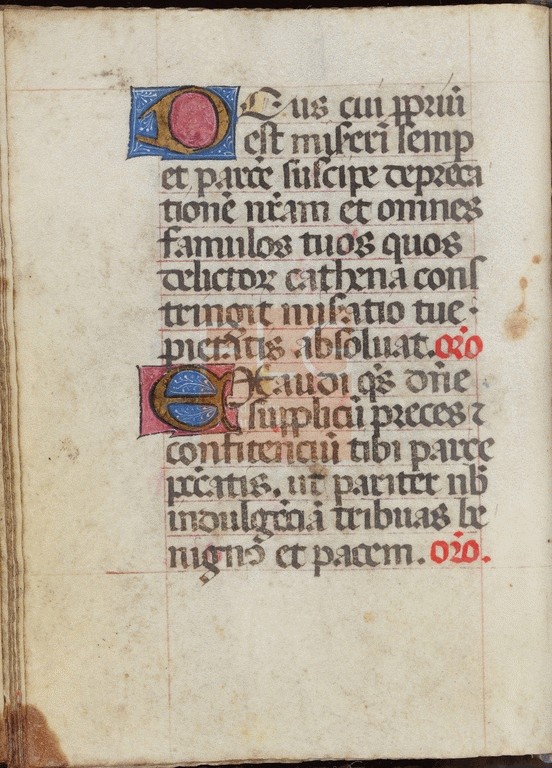 Deus cui ꝓpriũ
est miseri semp
et parcẽ suscipe depreca
tionẽ nr̃am et omnes
famulos tuos quos
delictoꝝ cathena cons
tringit miſatio tue
pietatis absoluat. oro
Exaudi qs̃ dñe
supplicũ preces ⁊
confitenciũ tibi parce
pccatis. ut pariter nb̃
indulgẽciã tribuas be
nignꝰ et pacem. oro.